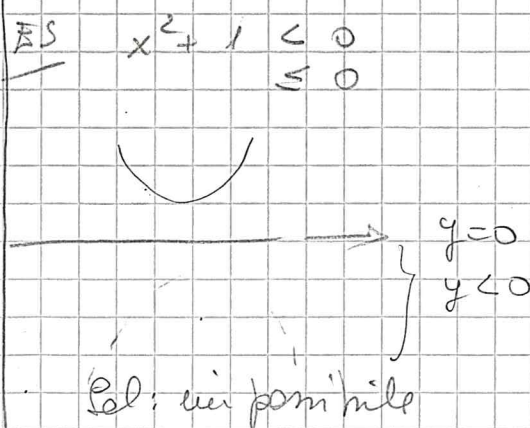 ES x²+ 1 < 0
≤ 0
y=0
y<0
Sol: impossibile